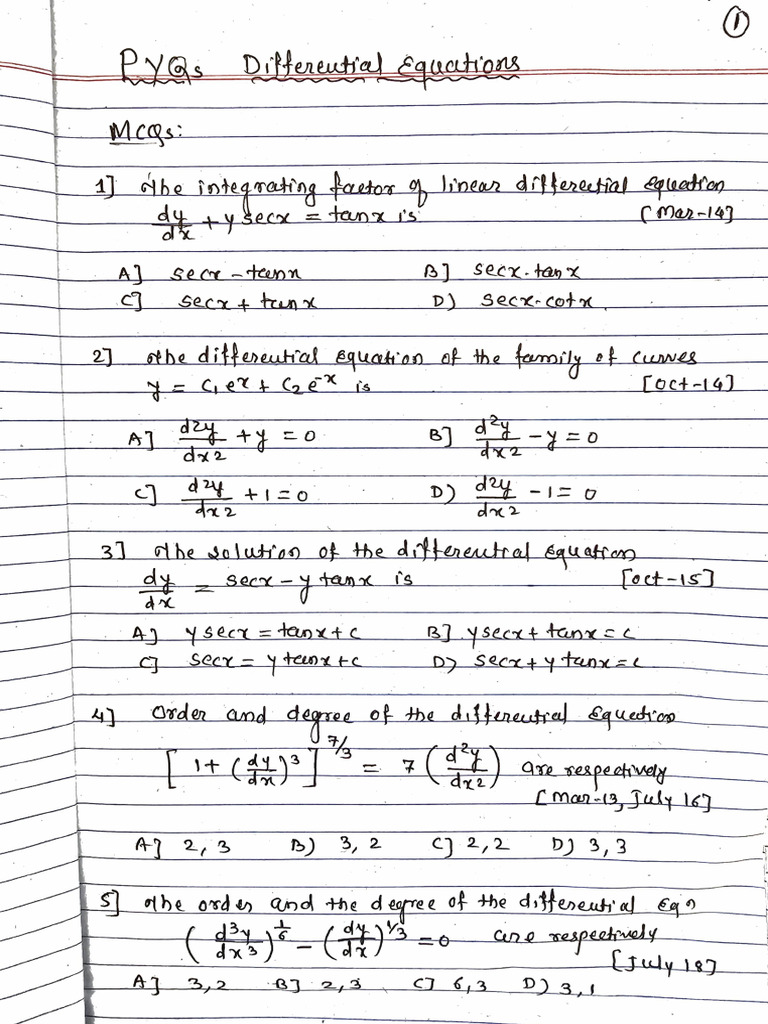 ①
PYQs Differential Equations
MCQs:
1] The integrating factor of linear differential equation
dy/dx + y secx = tanx is [Mar-14]
A] secx - tanx B] secx.tanx
C] secx + tanx D) secx.cotx.
2] The differential equation of the family of curves
y = C₁eˣ + C₂e⁻ˣ is [Oct-14]
A] d2y/dx2 + y = 0 B] d²y/dx2 - y = 0
C] d2y/dx2 + 1 = 0 D) d2y/dx2 - 1 = 0
3] The solution of the differential equation
dy/dx = secx - y tanx is [Oct-15]
A] y secx = tanx + c B] y secx + tanx = c
C] secx = y tanx + c D) secx + y tanx = c
4] Order and degree of the differential equation
[1 + (dy/dx)³]^7/3 = 7 (d²y/dx2) are respectively
[Mar-13, July 16]
A] 2, 3 B) 3, 2 C] 2, 2 D) 3, 3
5] The order and the degree of the differential Eqn
(d³y/dx3)^1/6 - (dy/dx)^1/3 = 0 are respectively
[July 18]
A] 3, 2 B] 2, 3 C] 6, 3 D) 3, 1